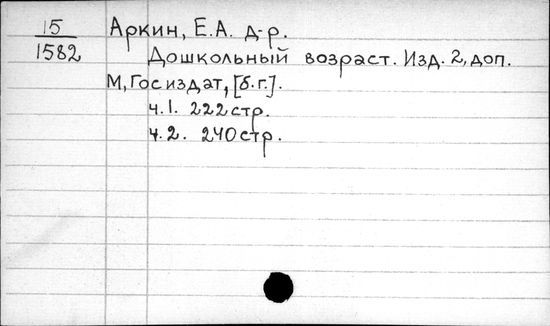 15
1582
Аркин, Е.А. д-р.
Дошкольный возраст. Изд. 2, доп.
М, Госиздат, [б.г.].
ч.1. 222стр.
ч.2. 240стр.